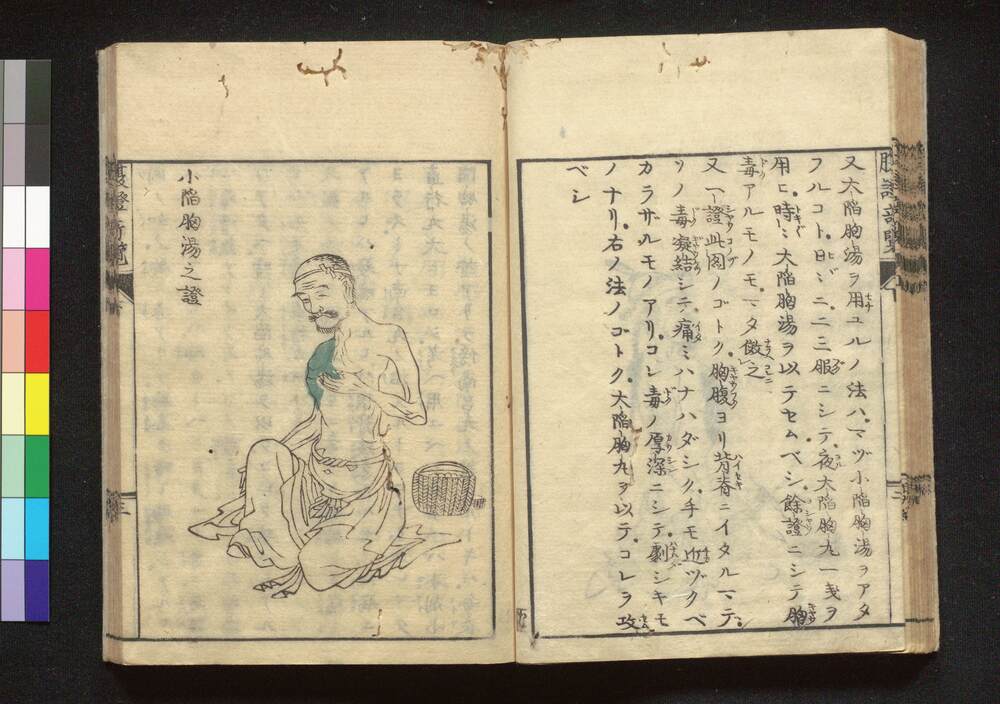 又大陥胸湯ヲ用ユルノ法ハ。マヅ小陥胸湯ヲアタ
フルコト。日ビニ。二三服ニシテ。夜大陥胸丸一戔ヲ
用ヒ。時〻大陥胸湯ヲ以テセムベシ。餘證ニシテ胸
毒アルモノモ。マタ傚之
又一證此圖ノゴトク。胸腹ヨリ背脊ニイタルマデ。
ソノ毒凝結シテ。痛ミハナハダシク。手モ近ヅクベ
カラザルモノアリ。コレ毒ノ厚深ニシテ。劇シキモ
ノナリ。右ノ法ノゴトク。大陥胸丸ヲ以テ。コレヲ攻
ベシ
小陥胸湯之證